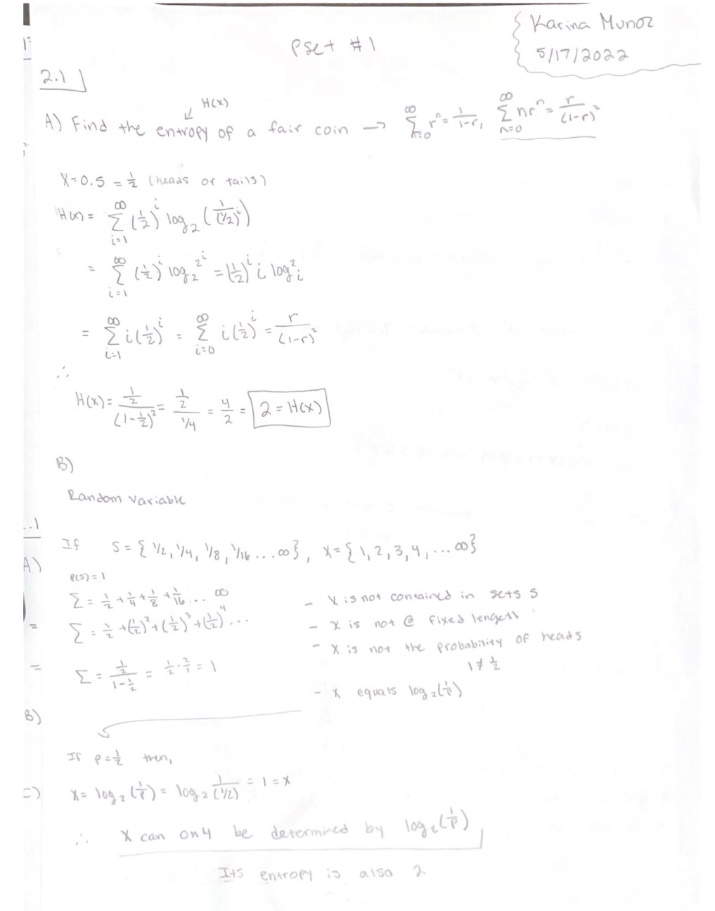 Karina Munoz
Pset #1
5/17/2022
2.1
H(x)
A) Find the entropy of a fair coin → ∑_{n=0}^{∞} r^n = 1/(1-r), ∑_{n=0}^{∞} nr^n = r/(1-r)^2
X=0.5 = 1/2 (heads or tails)
H(x) = ∑_{i=1}^{∞} (1/2)^i log_2 (1/(1/2)^i)
= ∑_{i=1}^{∞} (1/2)^i log_2 2^i = (1/2)^i i log^2 i
= ∑_{i=1}^{∞} i(1/2)^i = ∑_{i=0}^{∞} i(1/2)^i = r/(1-r)^2
∴
H(x) = (1/2)/(1-1/2)^2 = (1/2)/(1/4) = 4/2 = 2 = H(x)
B)
Random Variable
If S = { 1/2, 1/4, 1/8, 1/16 ... ∞ }, X = { 1, 2, 3, 4, ... ∞ }
A)
P(S) = 1
∑ = 1/2 + 1/4 + 1/8 + 1/16 ... ∞
- X is not contained in sets S
= ∑ = 1/2 + (1/2)^2 + (1/2)^3 + (1/2)^4 ...
- X is not @ fixed length
- X is not the probability of heads
1 ≠ 1/2
= ∑ = (1/2)/(1-1/2) = 1/2 · 2/1 = 1
- X equals log_2(1/P)
B)
If P = 1/2 then,
X = log_2 (1/P) = log_2 1/(1/2) = 1 = X
∴ X can only be determined by log_2(1/P)
Its entropy is also 2